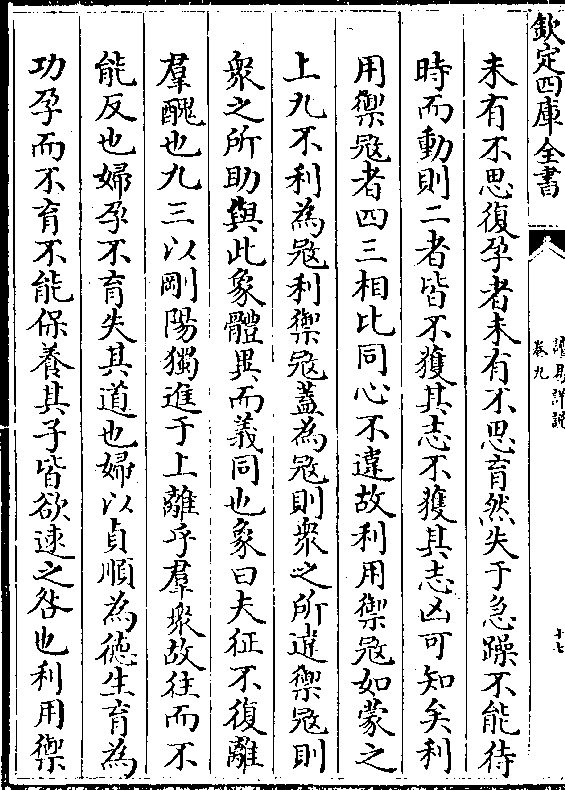 欽定四庫全書
讀易詳說
卷九
十七
未有不思復孕者未有不思育然失于急躁不能待
時而動則二者皆不獲其志不獲其志凶可知矣利
用禦冦者四三相比同心不違故利用禦冦如蒙之
上九不利為冦利禦冦蓋為冦則衆之所違禦冦則
衆之所助與此象體異而義同也象曰夫征不復離
羣醜也九三以剛陽獨進于上離乎羣衆故往而不
能反也婦孕不育失其道也婦以貞順為德生育為
功孕而不育不能保養其子皆欲速之咎也利用禦